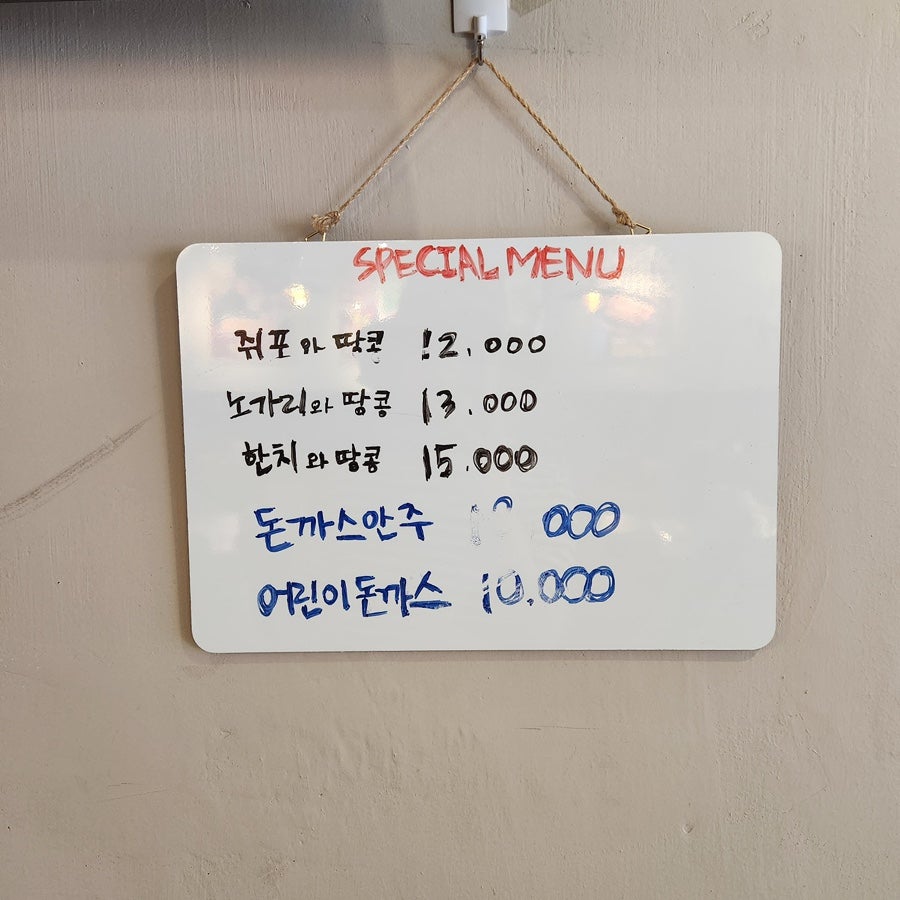 SPECIAL MENU
쥐포와 땅콩 12.000
노가리와 땅콩 13.000
한치와 땅콩 15.000
돈까스안주 000
어린이돈까스 10.000